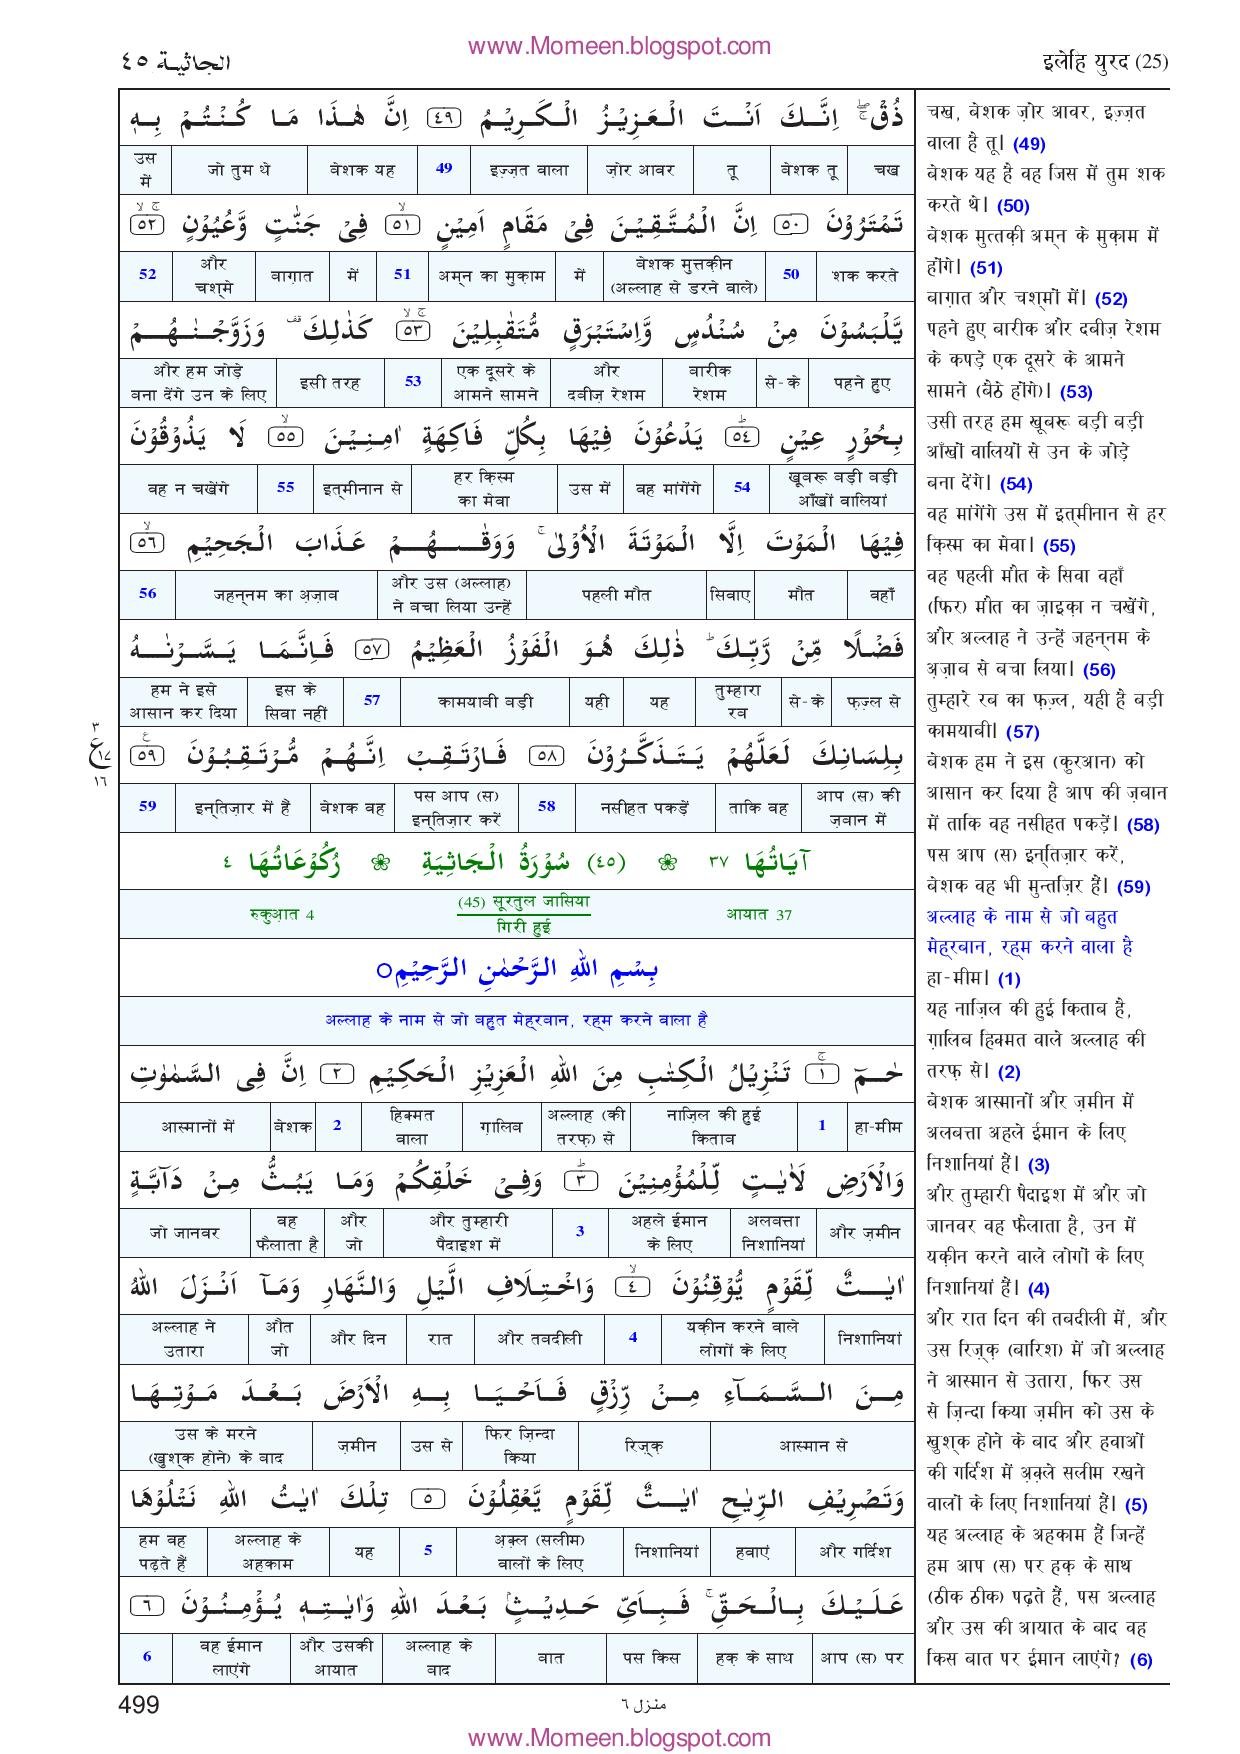 www.Momeen.blogspot.com
الجاثية ٤٥
इलेहि युरद (25)
ذُقْ ۚۙ اِنَّكَ اَنْتَ الْعَزِيْزُ الْكَرِيْمُ ٤٩ اِنَّ هٰذَا مَا كُنْتُمْ بِهٖ
चख | बेशक तू | तू | ज़ोर आवर | इज़्ज़त वाला | 49 | बेशक यह | जो तुम थे | उस में
تَمْتَرُوْنَ ٥٠ اِنَّ الْمُتَّقِيْنَ فِيْ مَقَامٍ اَمِيْنٍ ٥١ فِيْ جَنّٰتٍ وَّعُيُوْنٍ ٥٢
शक करते | 50 | बेशक मुत्तक़ीन (अल्लाह से डरने वाले) | में | अम्न का मुक़ाम | 51 | में | बाग़ात | और चश्मे | 52
يَّلْبَسُوْنَ مِنْ سُنْدُسٍ وَّاِسْتَبْرَقٍ مُّتَقٰبِلِيْنَ ٥٣ كَذٰلِكَ وَزَوَّجْنٰهُمْ
पहने हुए | से-के | बारीक रेशम | और दबीज़ रेशम | एक दूसरे के आमने सामने | 53 | इसी तरह | और हम जोड़े बना देंगे उन के लिए
بِحُوْرٍ عِيْنٍ ٥٤ يَدْعُوْنَ فِيْهَا بِكُلِّ فَاكِهَةٍ اٰمِنِيْنَ ٥٥ لَا يَذُوْقُوْنَ
खूबरू बड़ी बड़ी आँखों वालियां | 54 | वह मांगेंगे | उस में | हर क़िस्म का मेवा | इत्मीनान से | 55 | वह न चखेंगे
فِيْهَا الْمَوْتَ اِلَّا الْمَوْتَةَ الْاُوْلٰى ۚ وَوَقٰىهُمْ عَذَابَ الْجَحِيْمِ ٥٦
वहाँ | मौत | सिवाए | पहली मौत | और उस (अल्लाह) ने बचा लिया उन्हें | जहन्नम का अ़ज़ाब | 56
فَضْلًا مِّنْ رَّبِّكَ ؕ ذٰلِكَ هُوَ الْفَوْزُ الْعَظِيْمُ ٥٧ فَاِنَّمَا يَسَّرْنٰهُ
फ़ज़्ल से | से-के | तुम्हारा रब | यह | यही | कामयाबी बड़ी | 57 | इस के सिवा नहीं | हम ने इसे आसान कर दिया
بِلِسَانِكَ لَعَلَّهُمْ يَتَذَكَّرُوْنَ ٥٨ فَارْتَقِبْ اِنَّهُمْ مُّرْتَقِبُوْنَ ٥٩
٣ ع ١٧ ١٦
आप (स) की ज़बान में | ताकि वह | नसीहत पकड़ें | 58 | पस आप (स) इन्तिज़ार करें | बेशक वह | इन्तिज़ार में हैं | 59
آيَاتُهَا ٣٧ ❀ (٤٥) سُوْرَةُ الْجَاثِيَةِ ❀ رُكُوْعَاتُهَا ٤
आयात 37 | (45) सूरतुल जासिया गिरी हुई | रुकुआ़त 4
بِسْمِ اللهِ الرَّحْمٰنِ الرَّحِيْمِ○
अल्लाह के नाम से जो बहुत मेहरबान, रह्म करने वाला है
حٰمٓ ١ تَنْزِيْلُ الْكِتٰبِ مِنَ اللهِ الْعَزِيْزِ الْحَكِيْمِ ٢ اِنَّ فِى السَّمٰوٰتِ
हा-मीम | 1 | नाज़िल की हुई किताब | अल्लाह (की तरफ़) से | ग़ालिब | हिक्मत वाला | 2 | बेशक | आस्मानों में
وَالْاَرْضِ لَاٰيٰتٍ لِّلْمُؤْمِنِيْنَ ٣ وَفِيْ خَلْقِكُمْ وَمَا يَبُثُّ مِنْ دَآبَّةٍ
और ज़मीन | अलबत्ता निशानियां | अहले ईमान के लिए | 3 | और तुम्हारी पैदाइश में | और जो | वह फैलाता है | जो जानवर
اٰيٰتٌ لِّقَوْمٍ يُّوْقِنُوْنَ ٤ وَاخْتِلَافِ الَّيْلِ وَالنَّهَارِ وَمَآ اَنْزَلَ اللهُ
निशानियां | यक़ीन करने वाले लोगों के लिए | 4 | और तबदीली | रात | और दिन | औत जो | अल्लाह ने उतारा
مِنَ السَّمَآءِ مِنْ رِّزْقٍ فَاَحْيَا بِهِ الْاَرْضَ بَعْدَ مَوْتِهَا
आस्मान से | रिज़्क़ | फिर ज़िन्दा किया | उस से | ज़मीन | उस के मरने (खुश्क होने) के बाद
وَتَصْرِيْفِ الرِّيٰحِ اٰيٰتٌ لِّقَوْمٍ يَّعْقِلُوْنَ ٥ تِلْكَ اٰيٰتُ اللهِ نَتْلُوْهَا
और गर्दिश | हवाएं | निशानियां | अ़क़्ल (सलीम) वालों के लिए | 5 | यह | अल्लाह के अहकाम | हम वह पढ़ते हैं
عَلَيْكَ بِالْحَقِّ ۚ فَبِاَيِّ حَدِيْثٍۢ بَعْدَ اللهِ وَاٰيٰتِهٖ يُؤْمِنُوْنَ ٦
आप (स) पर | हक़ के साथ | पस किस | बात | अल्लाह के बाद | और उसकी आयात | वह ईमान लाएंगे | 6
चख, बेशक ज़ोर आवर, इज़्ज़त
वाला है तू। (49)
बेशक यह है वह जिस में तुम शक
करते थे। (50)
बेशक मुत्तक़ी अम्न के मुक़ाम में
होंगे। (51)
बाग़ात और चश्मों में। (52)
पहने हुए बारीक और दबीज़ रेशम
के कपड़े एक दूसरे के आमने
सामने (बैठे होंगे)। (53)
उसी तरह हम खूबरू बड़ी बड़ी
आँखों वालियों से उन के जोड़े
बना देंगे। (54)
वह मांगेंगे उस में इत्मीनान से हर
क़िस्म का मेवा। (55)
वह पहली मौत के सिवा वहाँ
(फिर) मौत का ज़ाइक़ा न चखेंगे,
और अल्लाह ने उन्हें जहन्नम के
अ़ज़ाब से बचा लिया। (56)
तुम्हारे रब का फ़ज़्ल, यही है बड़ी
कामयाबी। (57)
बेशक हम ने इस (क़ुरआन) को
आसान कर दिया है आप की ज़बान
में ताकि वह नसीहत पकड़ें। (58)
पस आप (स) इन्तिज़ार करें,
बेशक वह भी मुन्तज़िर हैं। (59)
अल्लाह के नाम से जो बहुत
मेहरबान, रह्म करने वाला है
हा-मीम। (1)
यह नाज़िल की हुई किताब है,
ग़ालिब हिक्मत वाले अल्लाह की
तरफ़ से। (2)
बेशक आस्मानों और ज़मीन में
अलबत्ता अहले ईमान के लिए
निशानियां हैं। (3)
और तुम्हारी पैदाइश में और जो
जानवर वह फैलाता है, उन में
यक़ीन करने वाले लोगों के लिए
निशानियां हैं। (4)
और रात दिन की तबदीली में, और
उस रिज़्क़ (बारिश) में जो अल्लाह
ने आस्मान से उतारा, फिर उस
से ज़िन्दा किया ज़मीन को उस के
खुश्क होने के बाद और हवाओं
की गर्दिश में अ़क़्ले सलीम रखने
वालों के लिए निशानियां हैं। (5)
यह अल्लाह के अहकाम हैं जिन्हें
हम आप (स) पर हक़ के साथ
(ठीक ठीक) पढ़ते हैं, पस अल्लाह
और उस की आयात के बाद वह
किस बात पर ईमान लाएंगे? (6)
499
منزل ٦
www.Momeen.blogspot.com